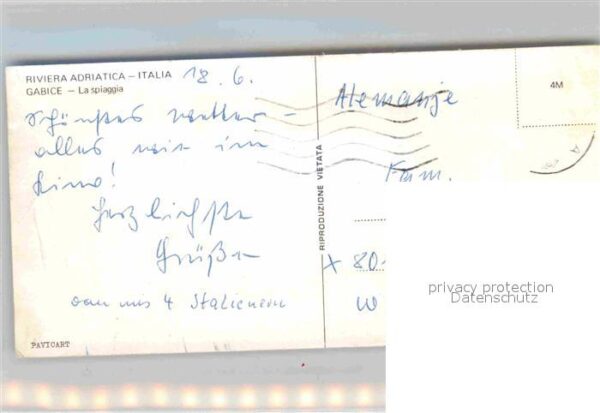 RIVIERA ADRIATICA – ITALIA
GABICE – La spiaggia
18.6.
Schönstes Wetter –
alles wie im
Kino!
Herzlichste
Grüße
von uns 4 Italienern
PAVICART
RIPRODUZIONE VIETATA
4M
Alemanje
Fam.
80
W
privacy protection
Datenschutz